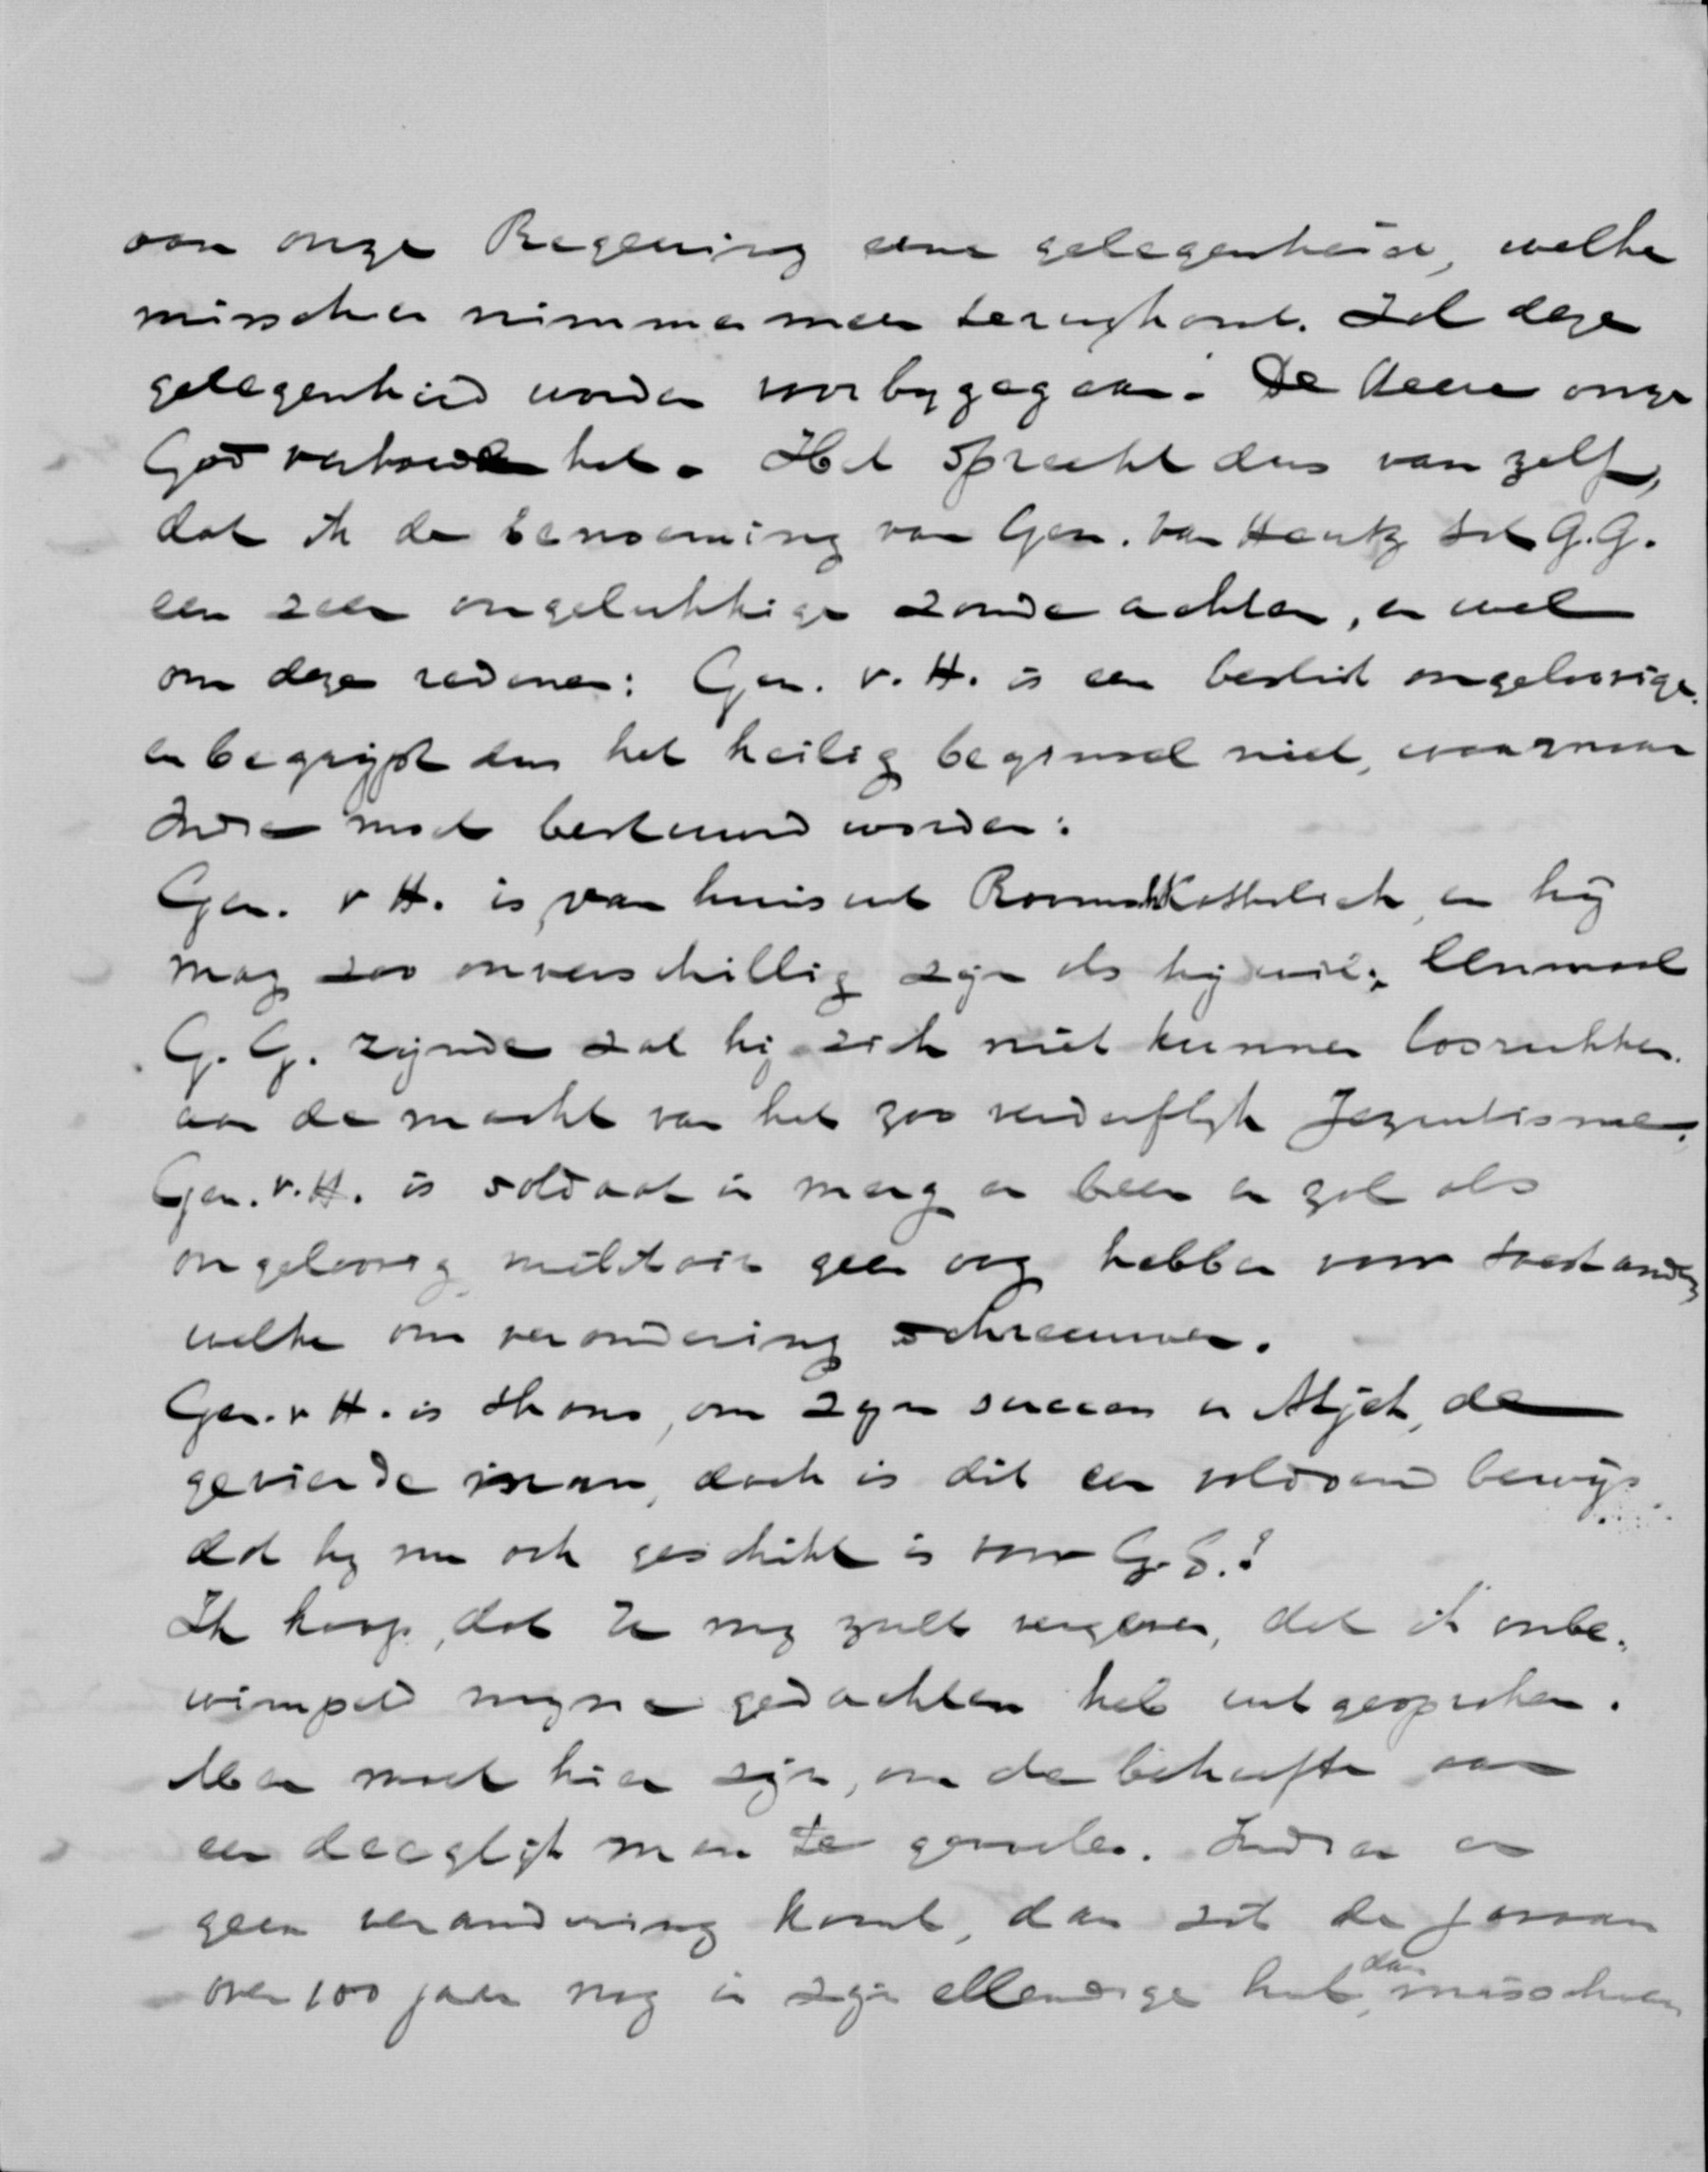 aan onze Regeering eene gelegenheid, welke
misschien nimmermeer terugkomt. Zal deze
gelegenheid worden voorbygegaan. De Heere onze
God verhoede het. Het spreekt dus van zelf,
dat ik de benoeming van Gen. van Heutz tot G.G.
een zeer ongelukkige zoude achten, en wel
om deze redenen: Gen. v. H. is een beslist ongeloovige
en begrijpt dus het heilig beginsel niet, waarnaar
Indie moet bestuurd worden:
Gen. v H. is van huis uit Roomsch Katholiek, en hij
mag zoo onverschillig zijn als hij wil; Eenmaal
G. G. zijnde zal hij zich niet kunnen losrukken
aan de macht van het zoo verderflijk Jezuitisme.
Gen. v. H. is soldaat in merg en been en zal als
ongeloovig militair geen oog hebben voor toestanden
welke om verandering schreeuwen.
Gen. v H. is thans, om zyn succes in Atjeh, de
gevierde man, doch is dit een voldoend bewijs
dat hy nu ook geschikt is voor G.G.?
Ik hoop, dat U my zult vergeven, dat ik onbe-
wimpeld myne gedachten heb uitgesproken.
Men moet hier zijn, om de behoefte aan
een deegelijk man te gevoelen. Indien er
geen verandering komt, dan zit de Javaan
over 100 jaar nog in zijn ellendige hut, dan misschien